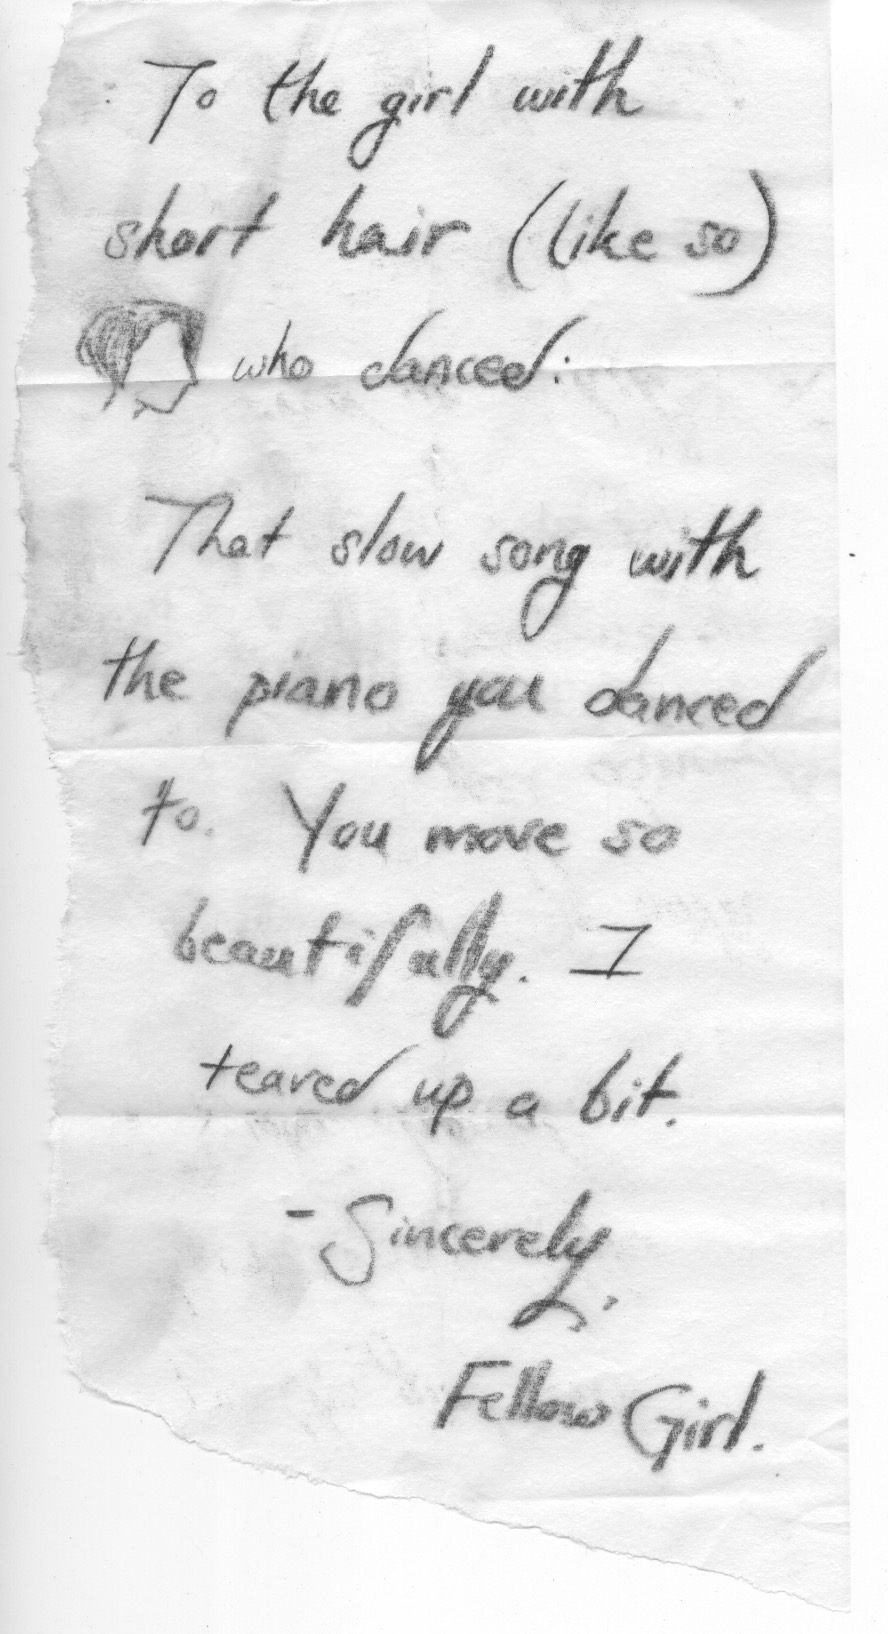 To the girl with
short hair (like so)
who danced:
That slow song with
the piano you danced
to. You move so
beautifully. I
teared up a bit.
- Sincerely,
Fellow Girl.